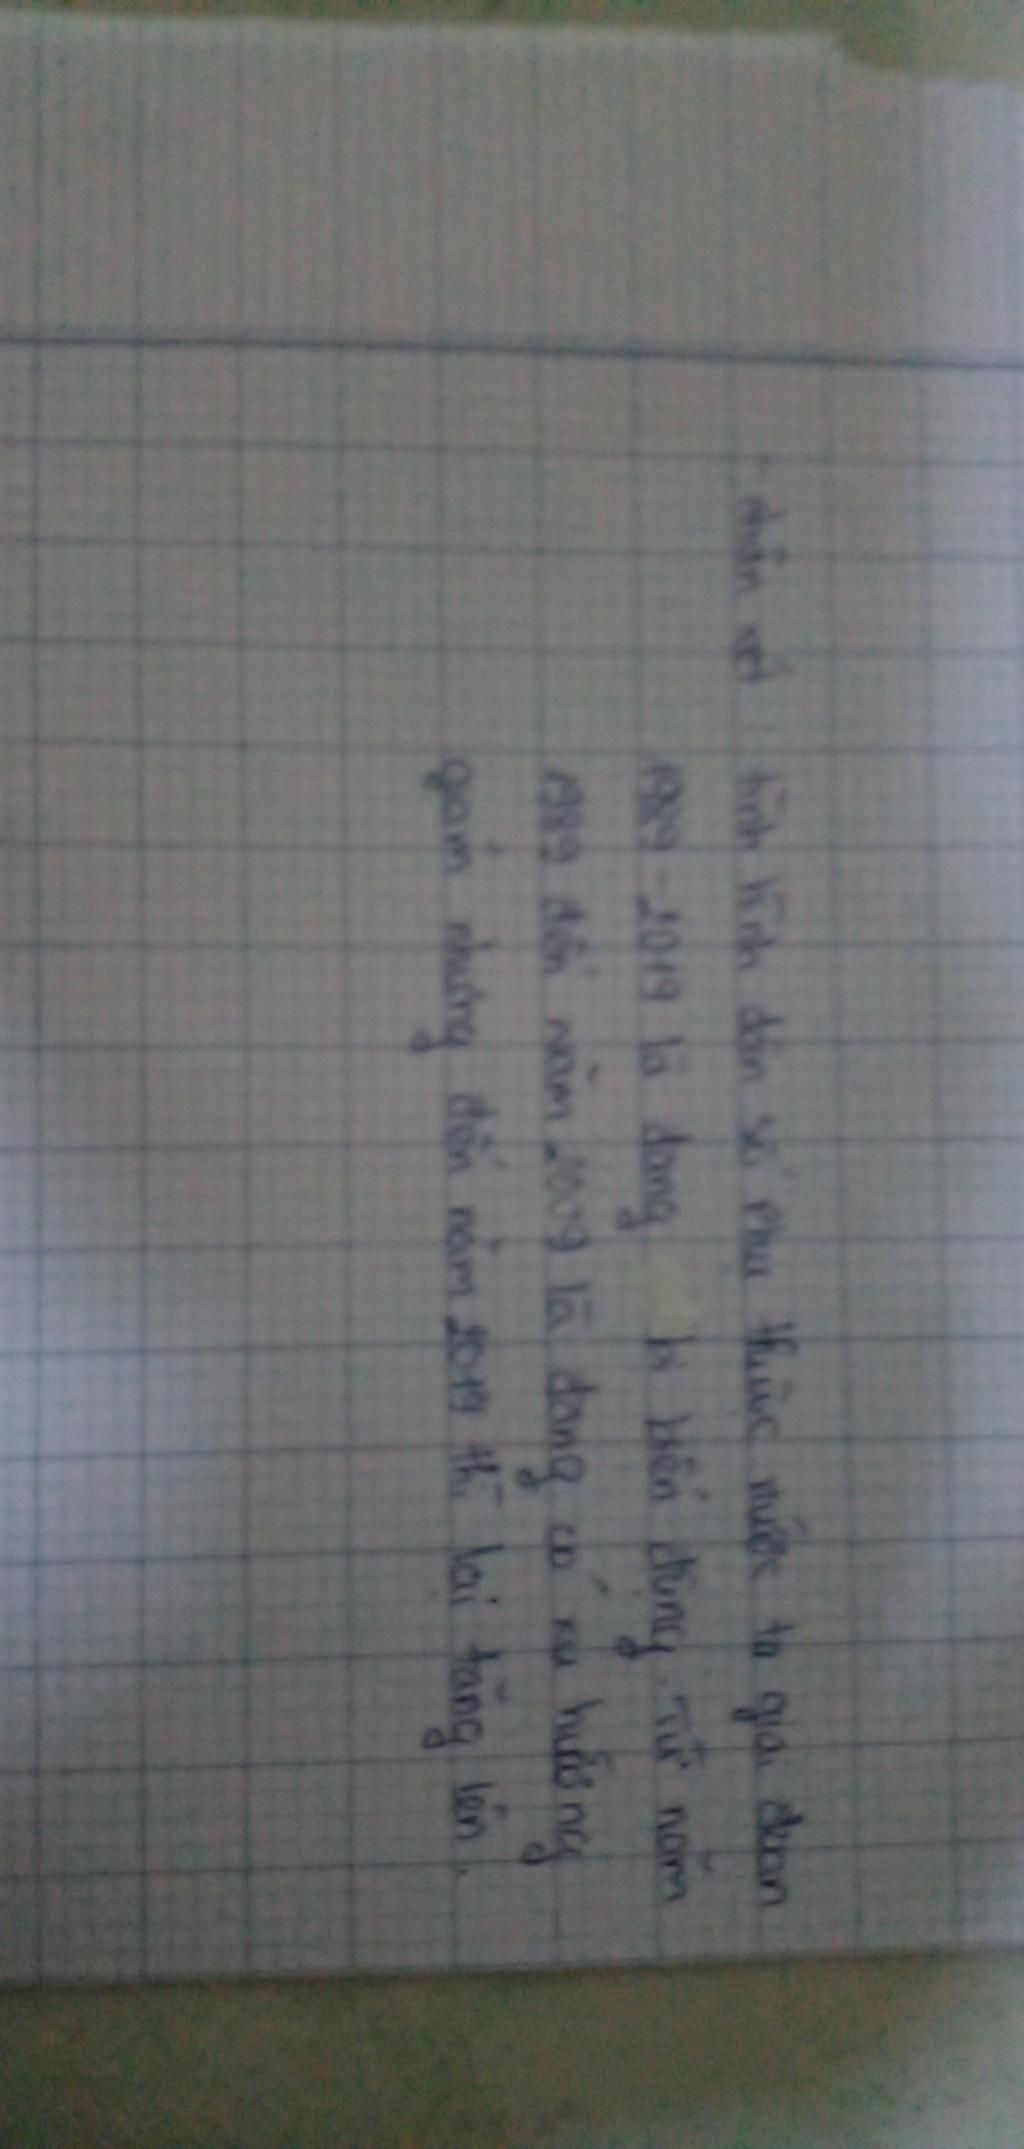 nhận xét : tình hình dân số phụ thuộc nước ta giai đoạn
1989 - 2019 là đang bị biến động. Từ năm
1989 đến năm 2009 là đang có xu hướng
giảm nhưng đến năm 2019 thì lại tăng lên.